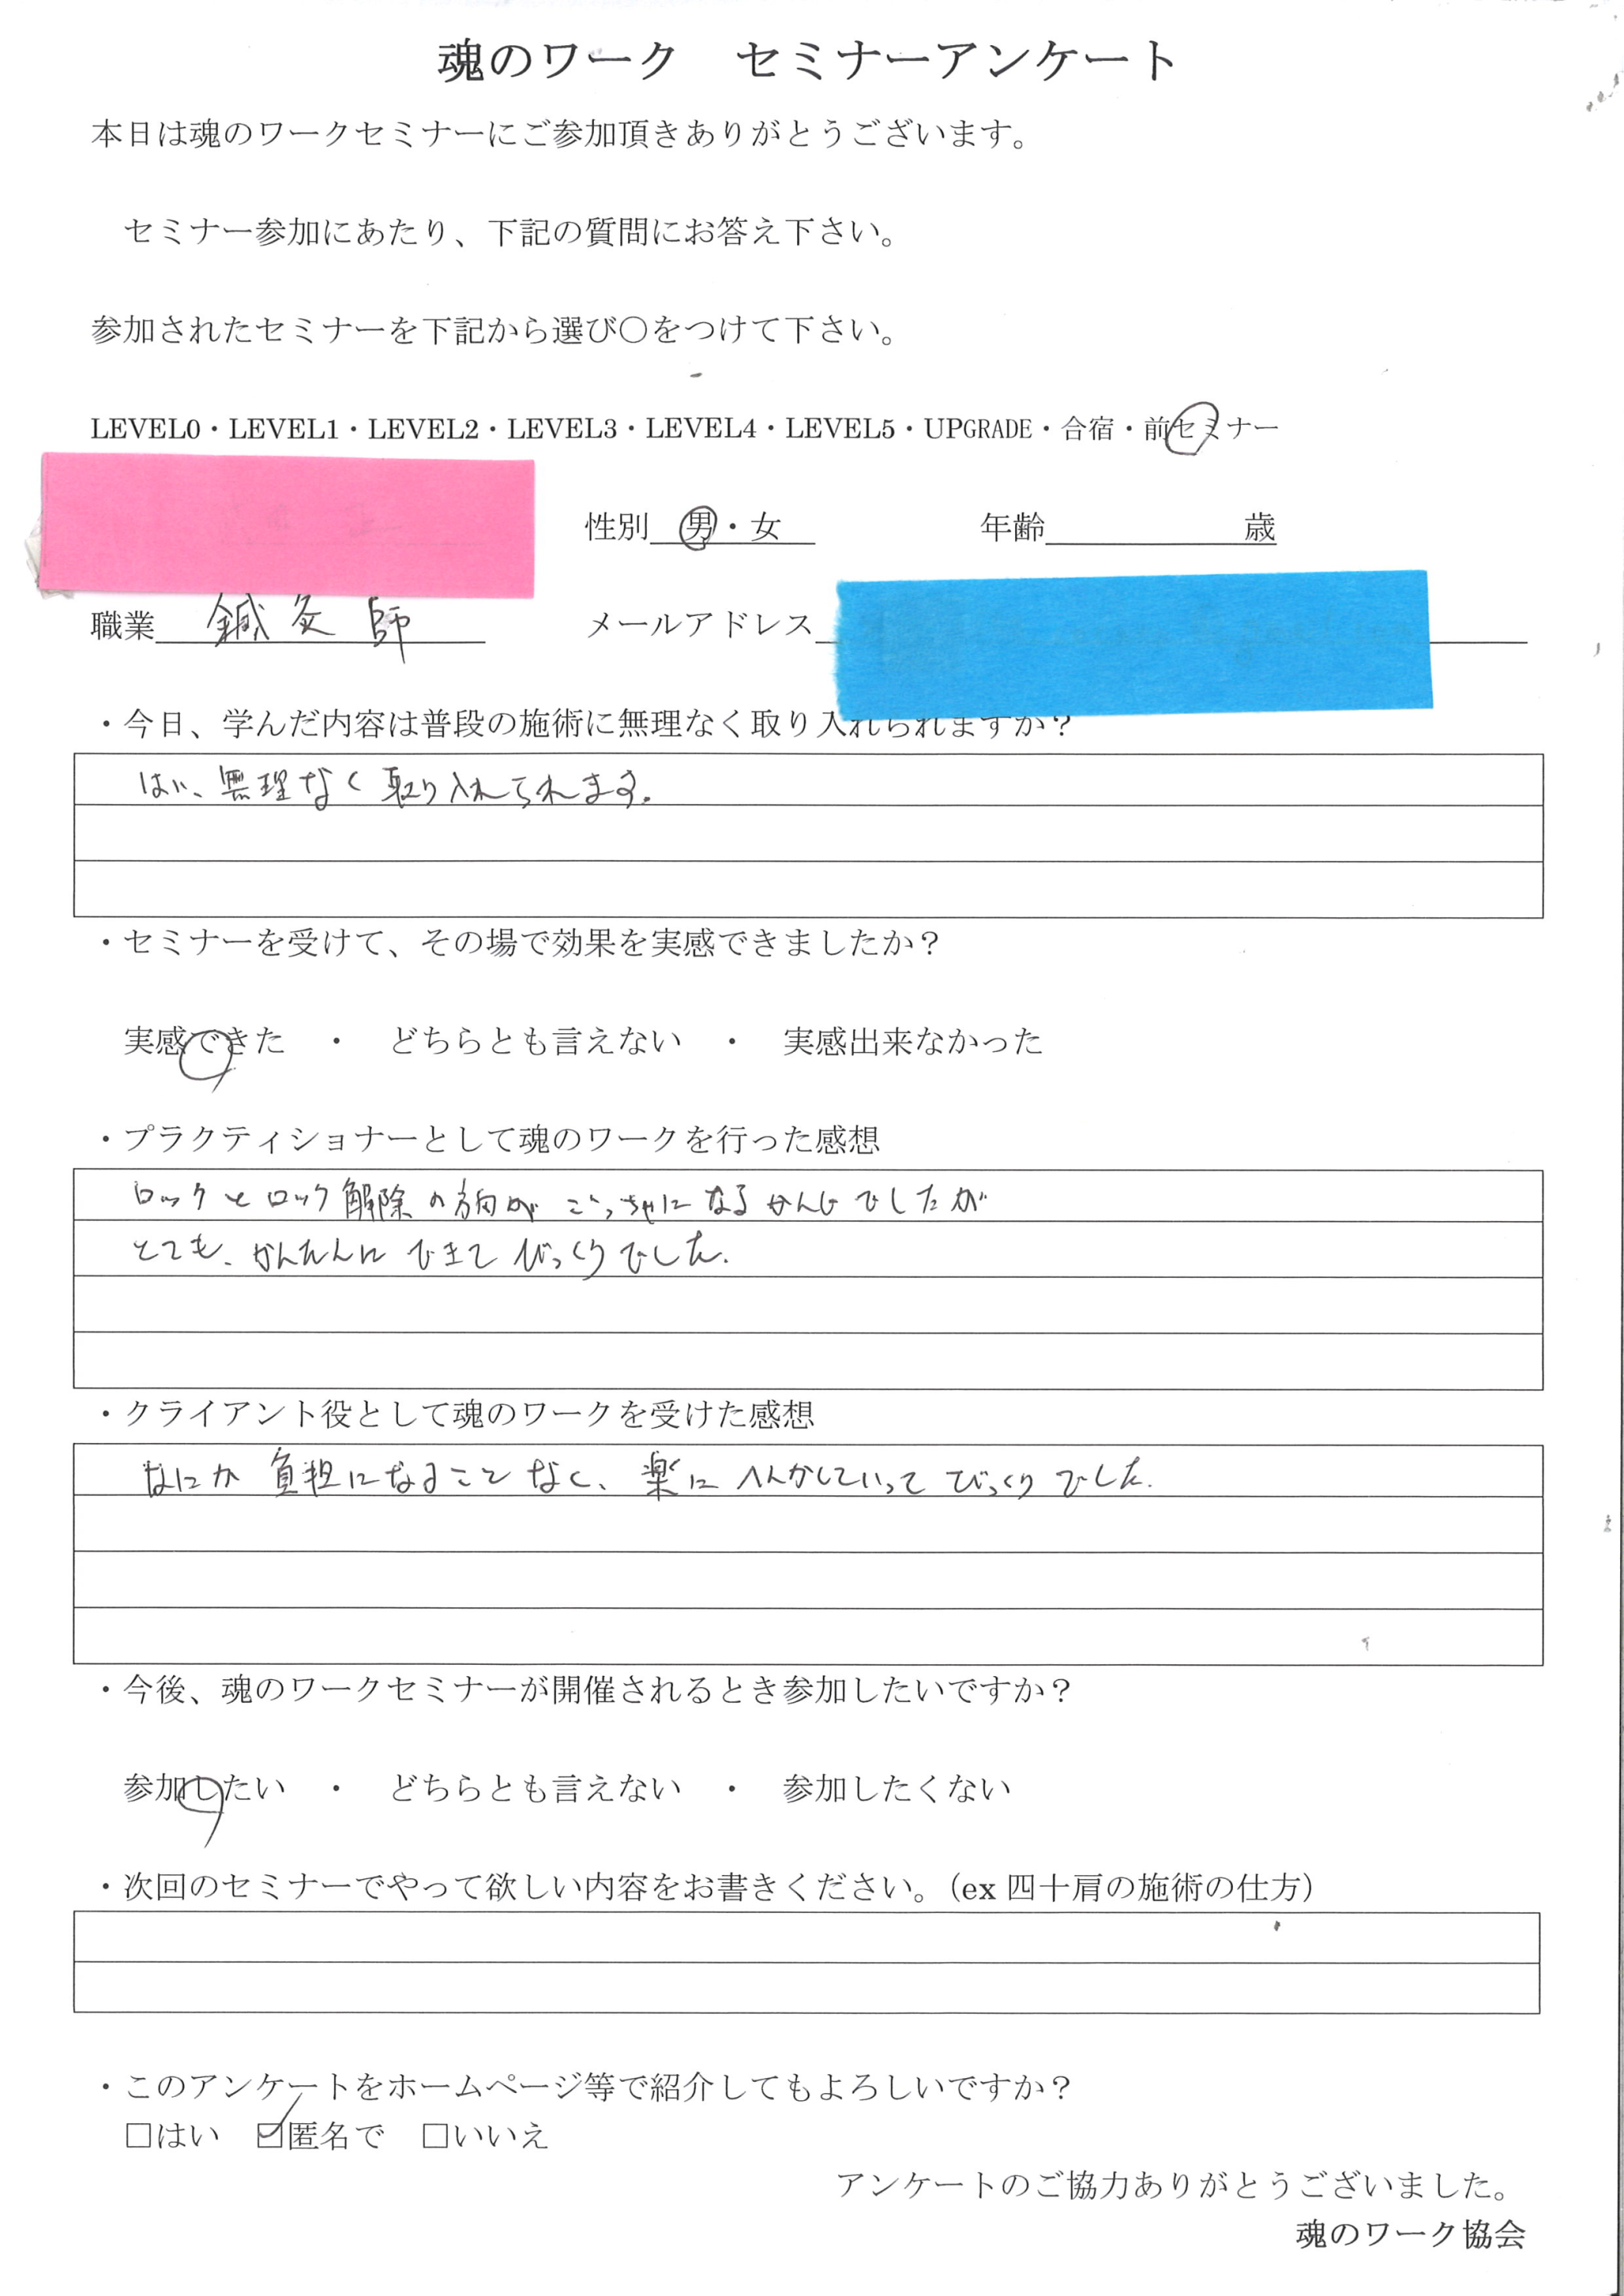 魂のワーク　セミナーアンケート
本日は魂のワークセミナーにご参加頂きありがとうございます。
セミナー参加にあたり、下記の質問にお答え下さい。
参加されたセミナーを下記から選び〇をつけて下さい。
LEVEL0・LEVEL1・LEVEL2・LEVEL3・LEVEL4・LEVEL5・UPGRADE・合宿・前セミナー
性別　男・女　年齢　歳
職業　鍼灸師　メールアドレス
・今日、学んだ内容は普段の施術に無理なく取り入れられますか？
はい、無理なく取り入れられます。
・セミナーを受けて、その場で効果を実感できましたか？
実感できた　・　どちらとも言えない　・　実感出来なかった
・プラクティショナーとして魂のワークを行った感想
ロックとロック解除の方向がごっちゃになるかんじでしたが
とても、かんたんにできてびっくりでした。
・クライアント役として魂のワークを受けた感想
なにか負担になることなく、楽にへんかしていってびっくりでした。
・今後、魂のワークセミナーが開催されるとき参加したいですか？
参加したい　・　どちらとも言えない　・　参加したくない
・次回のセミナーでやって欲しい内容をお書きください。（ex 四十肩の施術の仕方）
・このアンケートをホームページ等で紹介してもよろしいですか？
□はい　☑匿名で　□いいえ
アンケートのご協力ありがとうございました。
魂のワーク協会